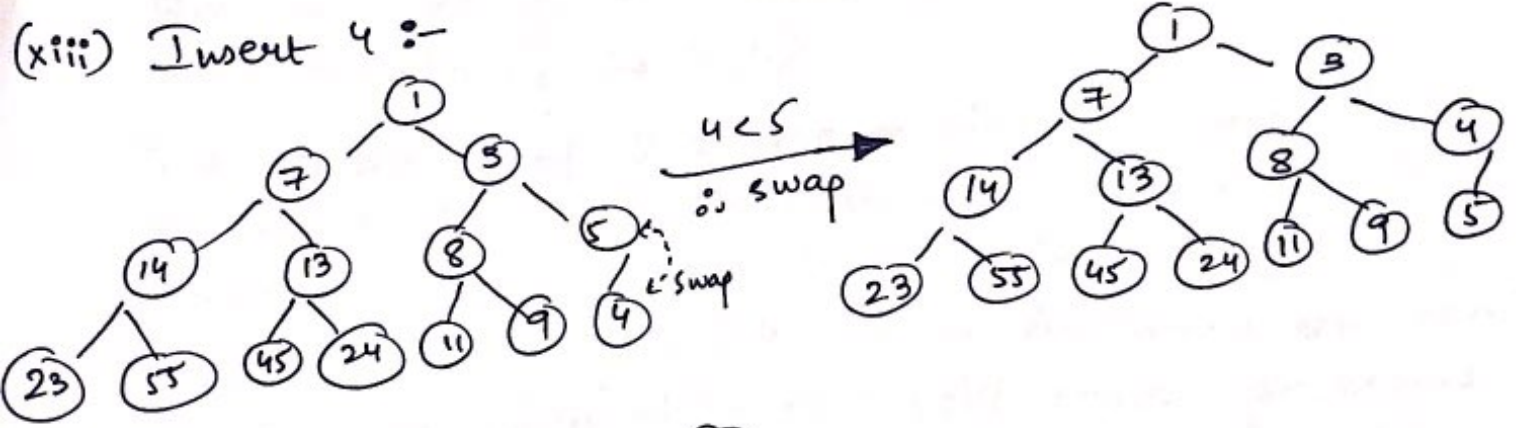 (xiii) Insert 4 :-
1
7 3
14 13 8 5
23 55 45 24 11 9 4
swap
4 < 5
∴ swap
1
7 3
14 13 8 4
23 55 45 24 11 9 5